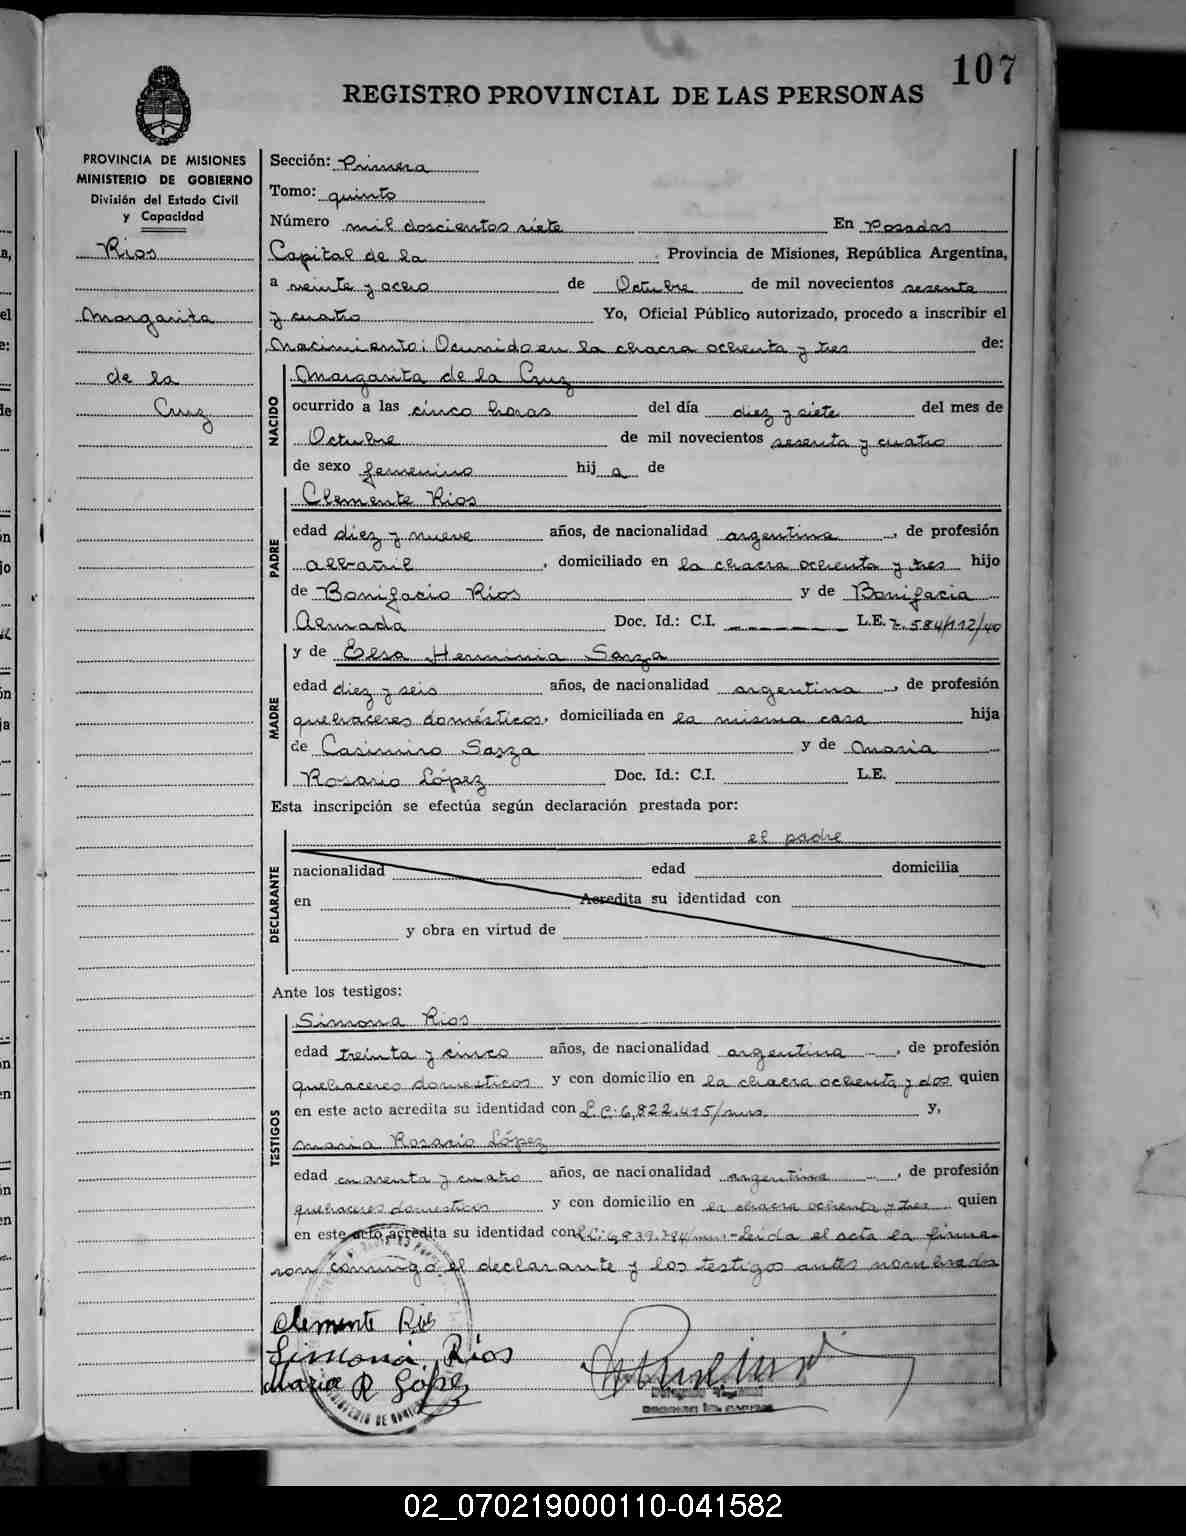 107
REGISTRO PROVINCIAL DE LAS PERSONAS
PROVINCIA DE MISIONES
MINISTERIO DE GOBIERNO
División del Estado Civil
y Capacidad
Rios
Margarita
de la
Cruz
Sección: Primera
Tomo: quinto
Número mil doscientos siete En Posadas
Capital de la Provincia de Misiones, República Argentina,
a veinte y ocho de Octubre de mil novecientos sesenta
y cuatro Yo, Oficial Público autorizado, procedo a inscribir el
Nacimiento: Ocurrido en la chacra ochenta y tres de:
NACIDO
Margarita de la Cruz
ocurrido a las cinco horas del día diez y siete del mes de
Octubre de mil novecientos sesenta y cuatro
de sexo femenino hij a de
PADRE
Clemente Rios
edad diez y nueve años, de nacionalidad argentina, de profesión
albañil, domiciliado en la chacra ochenta y tres hijo
de Bonifacio Rios y de Bonifacia
Almada Doc. Id.: C.I. L.E. 7.584/112/40
MADRE
y de Elsa Herminia Sarza
edad diez y seis años, de nacionalidad argentina, de profesión
quehaceres domésticos, domiciliada en la misma casa hija
de Casimiro Sarza y de Maria
Rosario López Doc. Id.: C.I. L.E.
Esta inscripción se efectúa según declaración prestada por:
DECLARANTE
el padre
nacionalidad edad domicilia
en Acredita su identidad con
y obra en virtud de
Ante los testigos:
TESTIGOS
Simona Rios
edad treinta y cinco años, de nacionalidad argentina, de profesión
quehaceres domesticos y con domicilio en la chacra ochenta y dos quien
en este acto acredita su identidad con L.C. 6,822.415/mns. y,
Maria Rosario López
edad cuarenta y cuatro años, de nacionalidad argentina, de profesión
quehaceres domesticos y con domicilio en la chacra ochenta y tres quien
en este acto acredita su identidad con L.C. 6,839.784/mns.- Leida el acta la firma-
ron conmigo el declarante y los testigos antes nombrados
Clemente Rios
Simona Rios
Maria R López
02_070219000110-041582